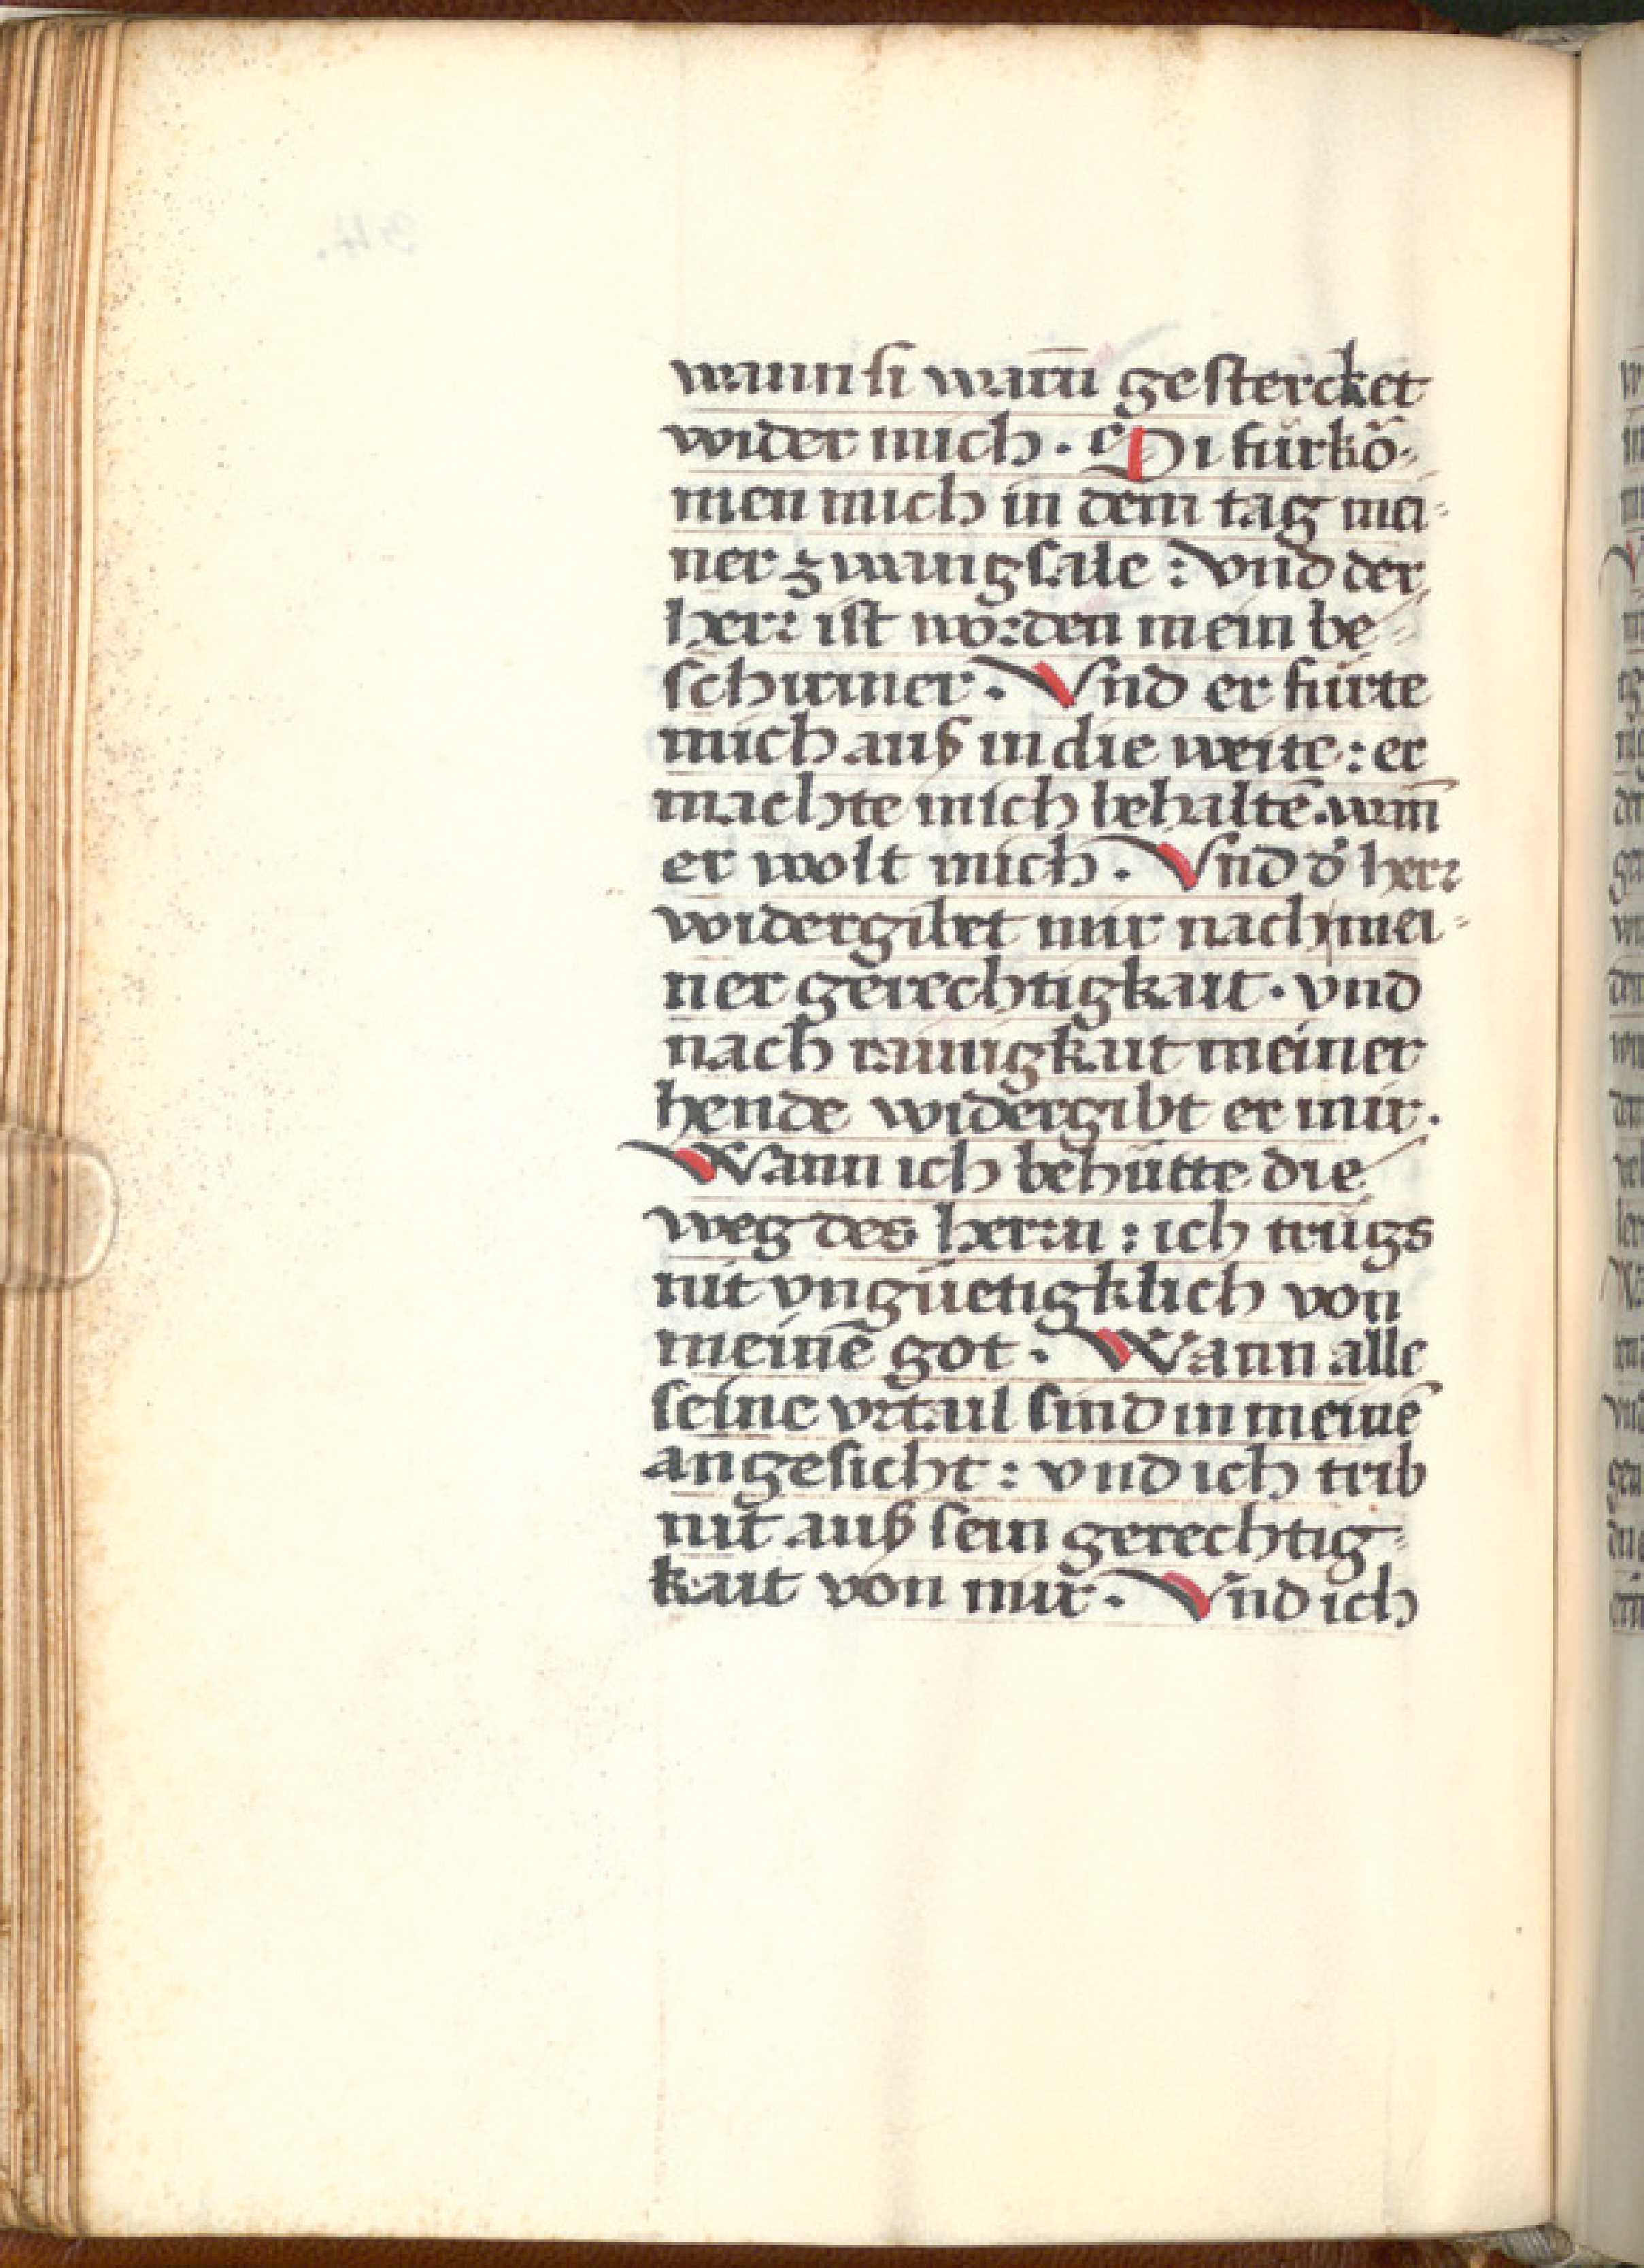 wann si warn̄ gestercket
wider mich · Si fürkō-
men mich in dem tag mei-
ner zwangsale : vnd der
herr ist worden mein be-
schirmer · Vnd er fürte
mich auß in die weite : er
machte mich behaltē · wan̄
er wolt mich · Vnd d' herr
widergibet mir nach mei-
ner gerechtigkait · vnd
nach rainigkait meiner
hende widergibt er mir ·
Wann ich behütte die
weg des herrn : ich trůgs
nit vngüetigklich von
meinē got · Wann alle
seine vrtail sind in meinē
angesicht : vnd ich trib
nit auß sein gerechtig-
kait von mir · Vnd ich